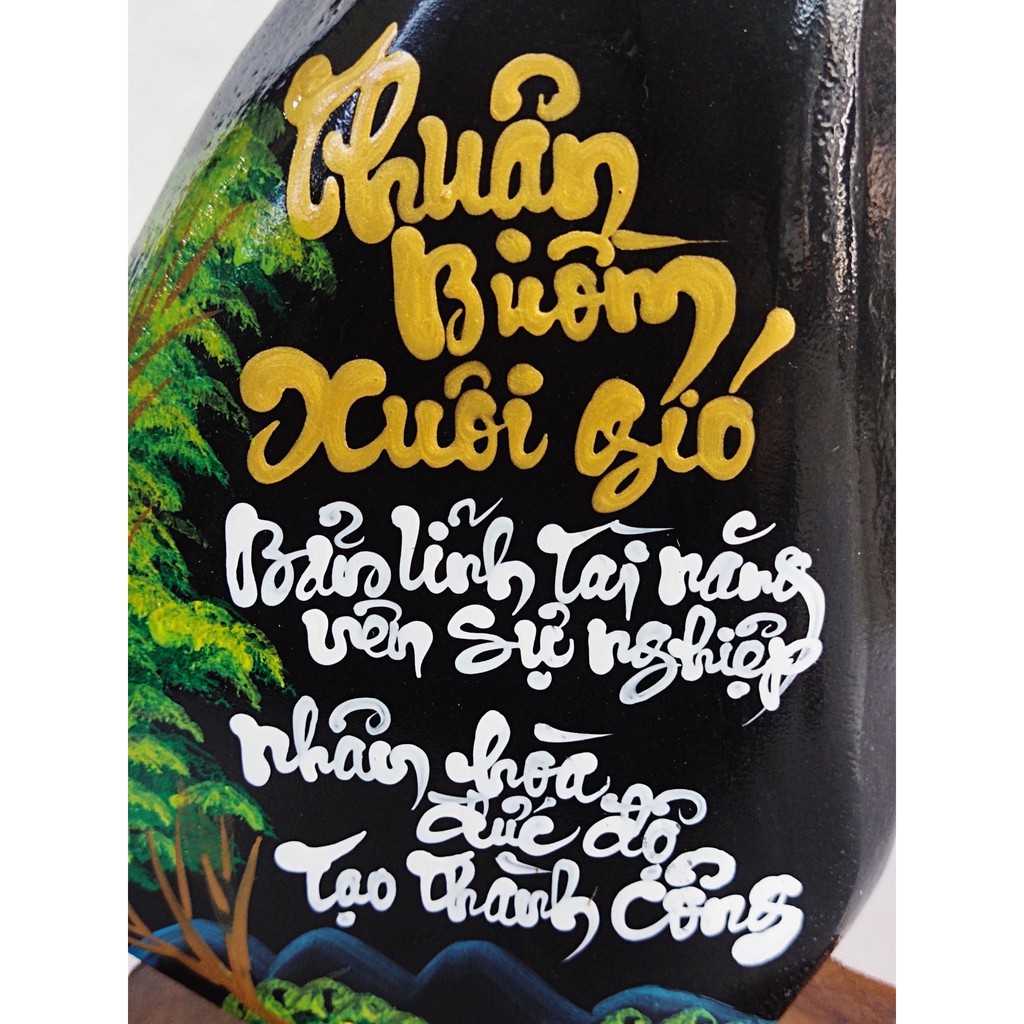 Thuận
Buồm
Xuôi Gió
Bản lĩnh Tài năng
nên Sự nghiệp
nhân hòa
Đức độ
Tạo Thành Công